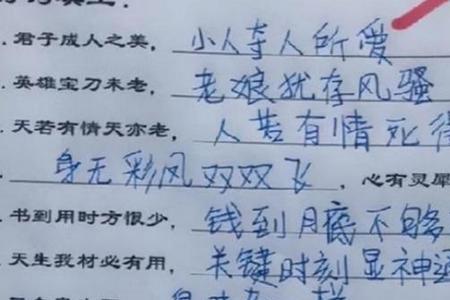 .君子成人之美，小人夺人所爱
.英雄宝刀未老，老娘犹存风骚
.天若有情天亦老，人若有情死得
.身无彩风双双飞，心有灵犀
.书到用时方恨少，钱到月底不够
.天生我材必有用，关键时刻显神通